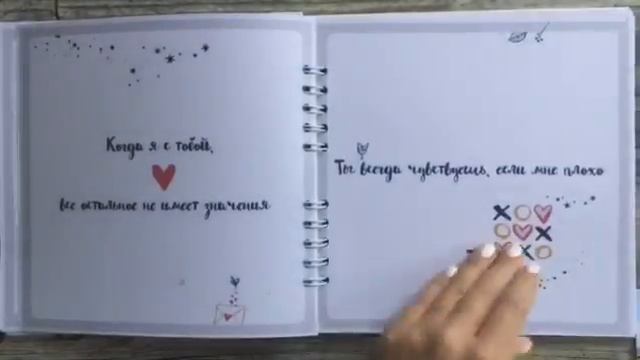 Когда я с тобой,
все остальное не имеет значения
Ты всегда чувствуешь, если мне плохо